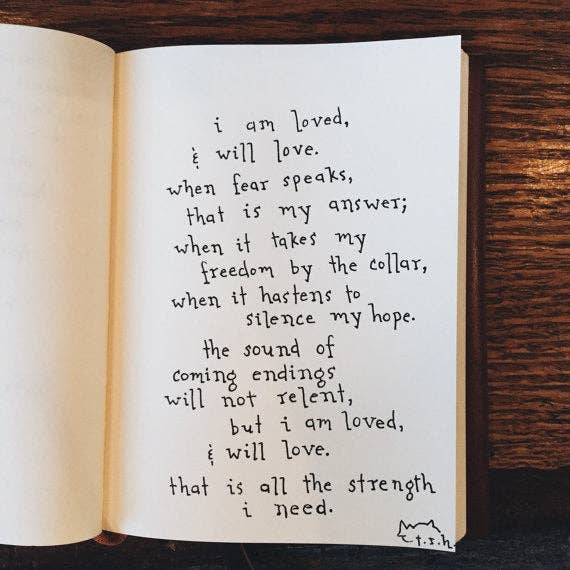 i am loved,
& will love.
when fear speaks,
that is my answer;
when it takes my
freedom by the collar,
when it hastens to
silence my hope.
the sound of
coming endings
will not relent,
but i am loved,
& will love.
that is all the strength
i need.
t.s.h.